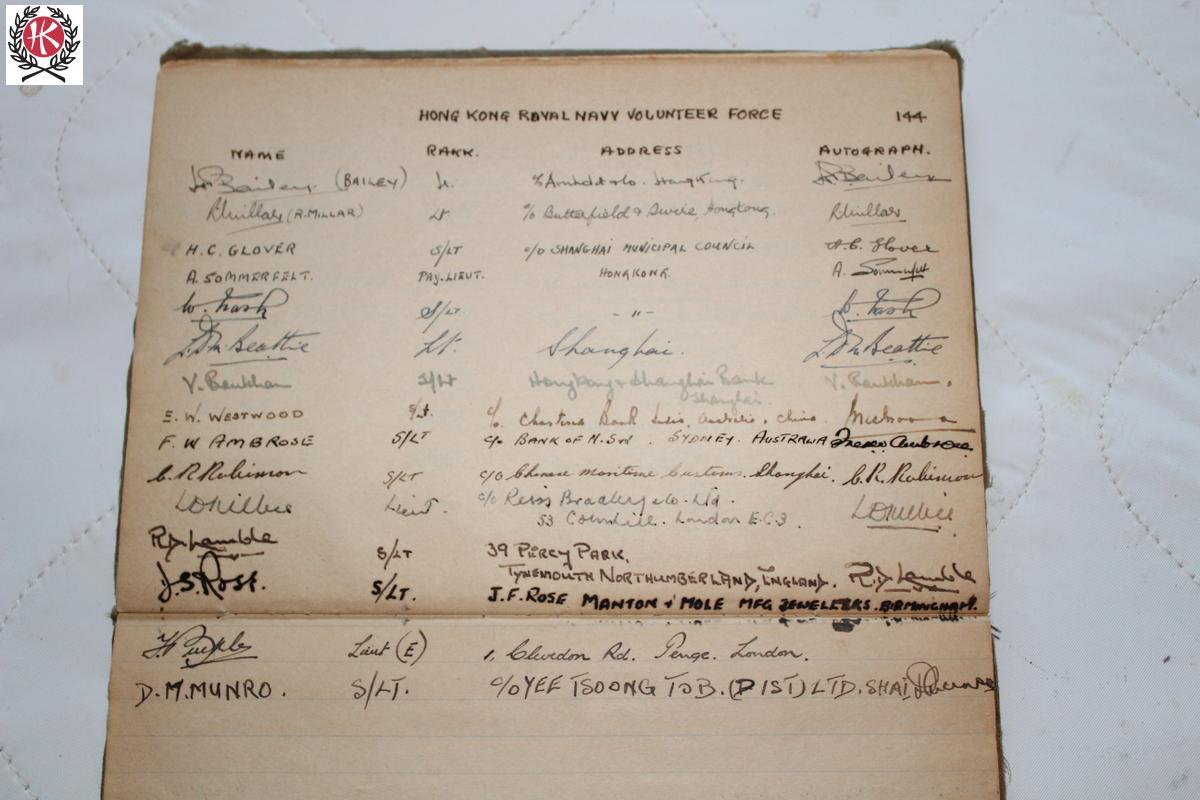 HK
HONG KONG ROYAL NAVY VOLUNTEER FORCE 144
NAME RANK. ADDRESS AUTOGRAPH.
Bailey. (BAILEY) Lt. c/o Arnhold & Co. Hong Kong. Bailey
R Millar (R. MILLAR) Lt c/o Butterfield & Swire, Hongkong. R Millar
H.C. GLOVER S/LT c/o SHANGHAI MUNICIPAL COUNCIL H.C. Glover
A. SOMMERFELT. PAY. LIEUT. HONGKONG. A. Sommerfelt
W. S/Lt - " - W.
Beattie Lt. Shanghai. Beattie
V. S/Lt HongKong & Shanghai Bank V.
Shanghai.
E. W. WESTWOOD S/Lt. c/o Chartered Bank India, Australia, China.
F. W AMBROSE S/LT c/o BANK OF N. SW. SYDNEY. AUSTRALIA Ambrose
C. R. Robinson S/LT c/o Chinese Maritime Customs. Shanghai. C. R. Robinson
Lieut. c/o Reiss Bradley & Co. Ltd.
53 Cornhill. London E.C.3.
R.D. S/LT 39 PERCY PARK,
TYNEMOUTH NORTHUMBERLAND, ENGLAND. R.D.
J.S. ROSE. S/LT. J.F. ROSE MANTON & MOLE MFG JEWELLERS. BIRMINGHAM.
Lieut (E) 1, Clevedon Rd. Penge. London.
D. M. MUNRO. S/LT. c/o YEE TSOONG TOB. (DIST) LTD. SHAI